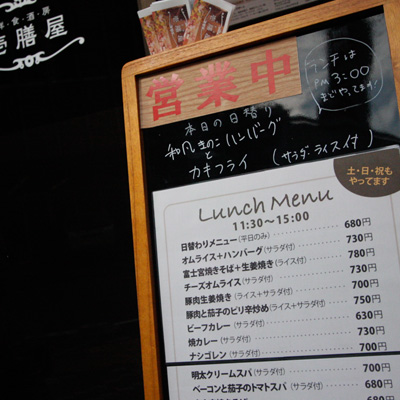 洋・食・酒・房
壱膳屋
営業中
ランチは
PM 3:00
までやってます!
本日の日替り
和風きのこハンバーグ
と
カキフライ (サラダ・ライス付)
土・日・祝も
やってます
Lunch Menu
11:30〜15:00
日替わりメニュー(平日のみ) 680円
オムライス+ハンバーグ(サラダ付) 730円
富士宮焼きそば+生姜焼き(ライス付) 780円
チーズオムライス(サラダ付) 730円
豚肉生姜焼き(ライス+サラダ付) 700円
豚肉と茄子のピリ辛炒め(ライス+サラダ付) 750円
ビーフカレー(サラダ付) 630円
焼カレー(サラダ付) 730円
ナシゴレン(サラダ付) 700円
明太クリームスパ(サラダ付) 700円
ベーコンと茄子のトマトスパ(サラダ付) 680円
680円